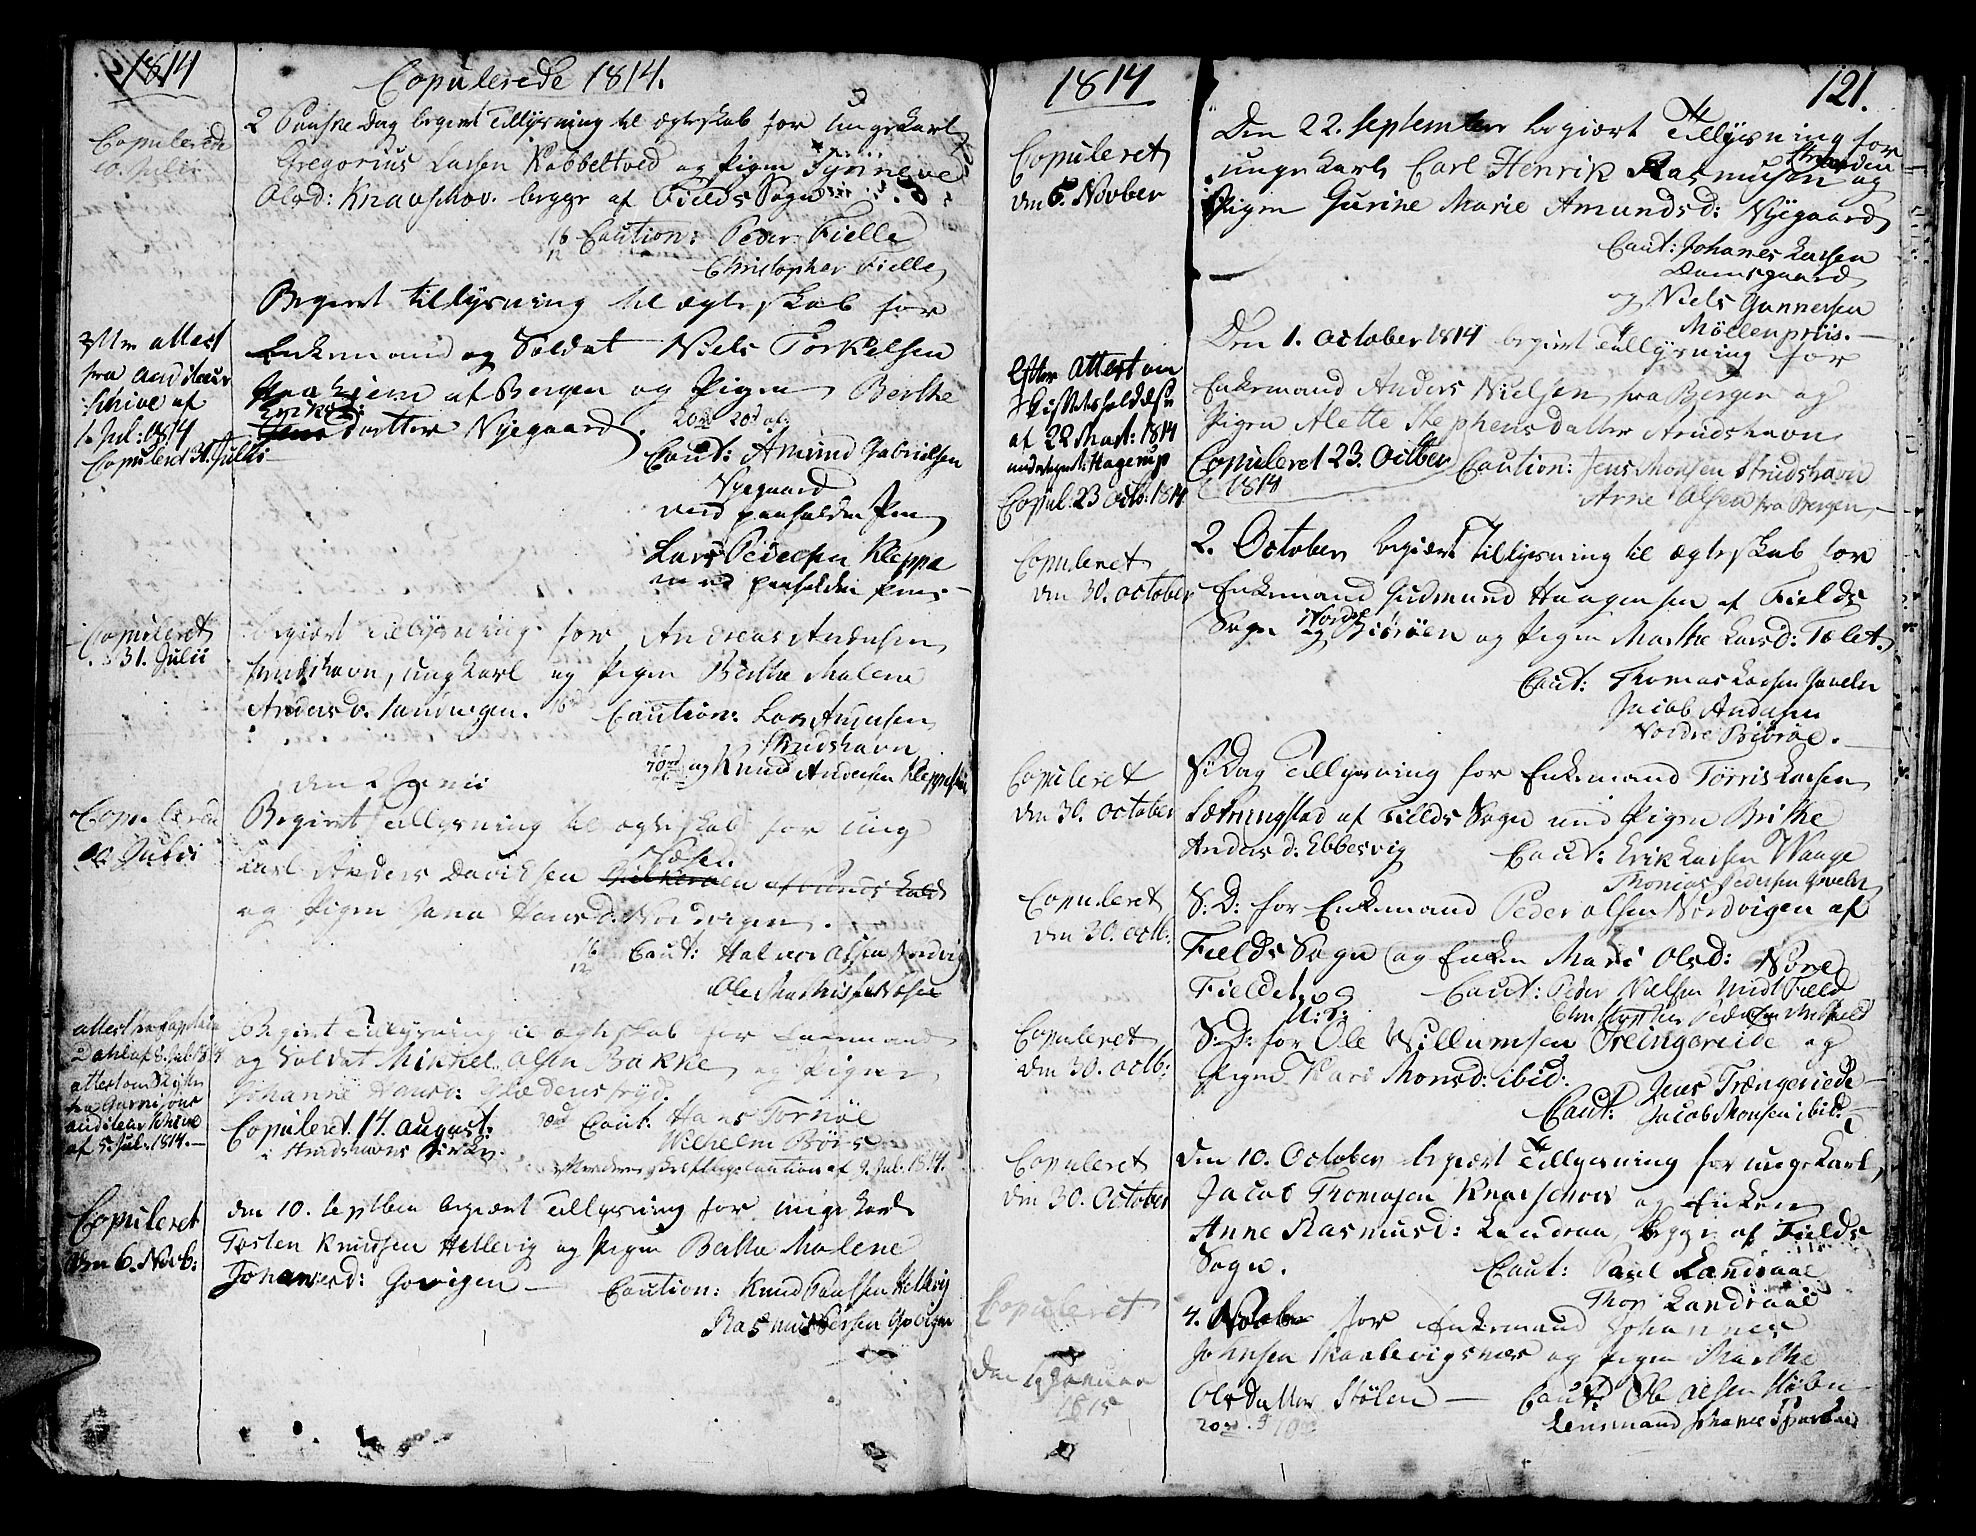 1814
Copulerede 1814.
Copulerede
10. Julii
2 Paaske Dag begiert Tillysning til ægteskab for Ungekarl
Gregorius Larsen Kobbeltved og Pigen Synneve
Olsd: Knapschov. begge af Fields Sogn
Caution: Peder Fielle
Christopher Fielle
Begiert tillysning til ægteskab for
Enkemand og Soldat Niels Torkelsen
af Bergen og Pigen Berthe
datter Nyegaard.
attest
fra Auditeur
Schive af
1. Jul: 1814
Copuleret Julii
Caut: Amund Gabrielsen
Nyegaard
med paaholden Pen
Lars Pedersen Kleppe
med paaholden Pen
Copuleret
31. Julii
begiert Tillysning for Andreas Andersen
Strudshavn, ungkarl og Pigen Berthe Malene
Andersd. Sandvigen. Caution: Lars Amundsen
Strudshavn
og Knud Andersen Kleppe
den 2 Junii
Copulered
Julii
Begiert Tillysning til ægteskab for ung
karl Anders Davidsen
og Pigen Jana Hansd. Nordvigen.
Caut: Halvor Olsen Nordvig
Ole Mathisen
attest fra Captain
Dahl af 8. Jul. 1814
attest om Skifte
fra Garnisons
auditeur Schive
af 5. Jul. 1814.
Begiert Tillysning til ægteskab for Enkemand
og Soldat Mikkel Olsen Bakke og Pigen
Johanne Hansd: Glædenstryd.
Copuleret 14. august.
i Strudshavns Kirke
Caut: Hans Tornøe
Wilhelm Børs
skriftlige Caution af 9. Jul. 1814.
Copuleret
den 6. Novb:
den 10. Septbr begiert Tillysning for unge karl
Tosten Knudsen Hellevig og Pigen Bertha Malene
Johannesd: Govigen Caution: Knud Paulsen Hellevig
Rasmus Iversen Govigen
1814
121.
Copuleret
den 6. Novber
Den 22. September begiert Tillysning for
unge karl Carl Henrik Rasmusen Stranden og
Pigen Gurine Marie Amundsd: Nyegaard
Caut: Johanes Larsen
Damsgaard
og Niels Gunnersen
Møllenpriis.
Efter Attest om
Skiftets holdelse
af 22 Mart: 1814
undertegnet: Hagerup
Copul. 23 Octb. 1814
Den 1. October 1814 begiert Tillysning for
Enkemand Anders Nielsen fra Bergen og
Pigen Alette Stephensdatter Strudshavn
Copuleret 23. Octbr 1814
Caution: Jens Monsen Strudshavn
Arne Olsen fra Bergen
Copuleret
den 30. october
2. October begiert Tillysning til ægteskab for
Enkemand Gudmund Haagensen af Fields
Sogn Nordre Biørøen og Pigen Marthe Larsd: Tølet.
Caut: Thomas Larsen Gavelen
Jacob Andersen
Nordre Biørøe.
Copuleret
den 30. october
S: Dag Tillysning for Enkemand Tørris Larsen
af Fields Sogn med Pigen Brithe
Andersd: Ebbesvig
Caut: Erik Larsen Waage
Thomas Pedersen Gavelen
Copuleret
den 30. octb:
S: D: for Enkemand Peder Olsen Nordvigen af
Fields Sogn og Enken Mari Olsd: Nore
Fielde
Caut: Peder Nielsen Midt Field
Christopher Pedersen Midtfield
Copuleret
den 30. octb:
S: D: for U: K: Ole Willumsen Treingereide og
Pigen Kari Monsd: ibid:
Caut: Jens Trengereide
Jacob Monsen ibid:
Copuleret
den 30. October
den 10. October begiert Tillysning for unge karl
Jacob Thomasen Knapschov og Enken
Anne Rasmusd: Landraa, begge af Fields
Sogn.
Caut: Paul Landraae
Thor Landraae
Copuleret
den Januar
1815
4. Novbr for Enkemand Johannes
Johnsen og Pigen Marthe
Olsdatter Stølen
Caut: Ole Olsen Stølen
Lensmand